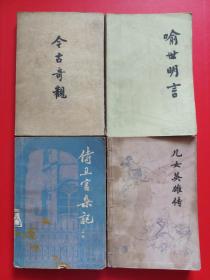 今古奇觀
喻世明言
侍卫官杂记
儿女英雄传